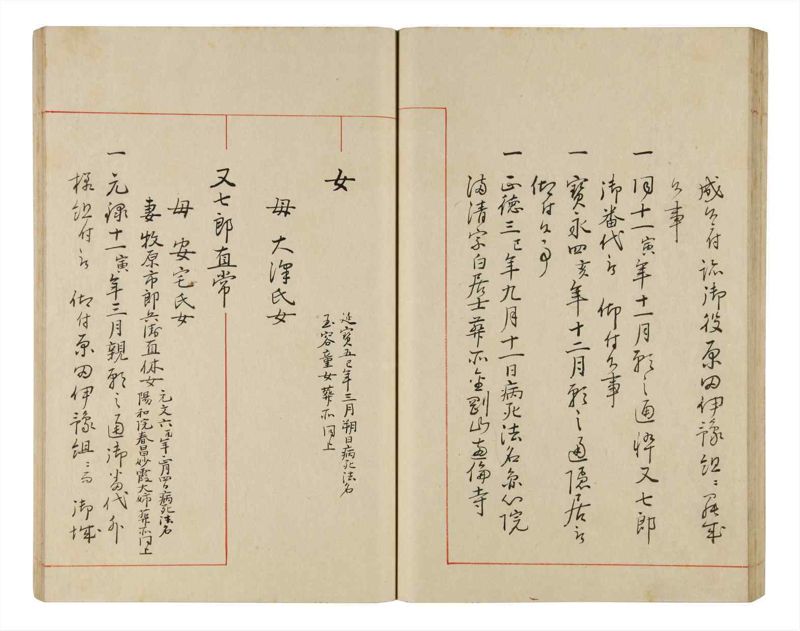 成公府詰御役原田伊豫組ニ罷成
公事
一 同十一寅年十一月願之通忰又七郎
御番代被 仰付公事
一 寶永四亥年十二月願之通隠居被
仰付公事
一 正徳三巳年九月十一日病死法名
満清字白居士葬所金剛山
女
延寶五巳年三月朔日病死法名
玉容童女葬所同上
母 大澤氏女
又七郎直常
母 安宅氏女
妻 牧原市郎兵衛直休女
元文六年二月四日病死法名
陽和院春昌妙霞大姉葬所同上
一 元禄十一寅年三月親願之通御番代外
様組付被 仰付原田伊豫組ニ而 御城